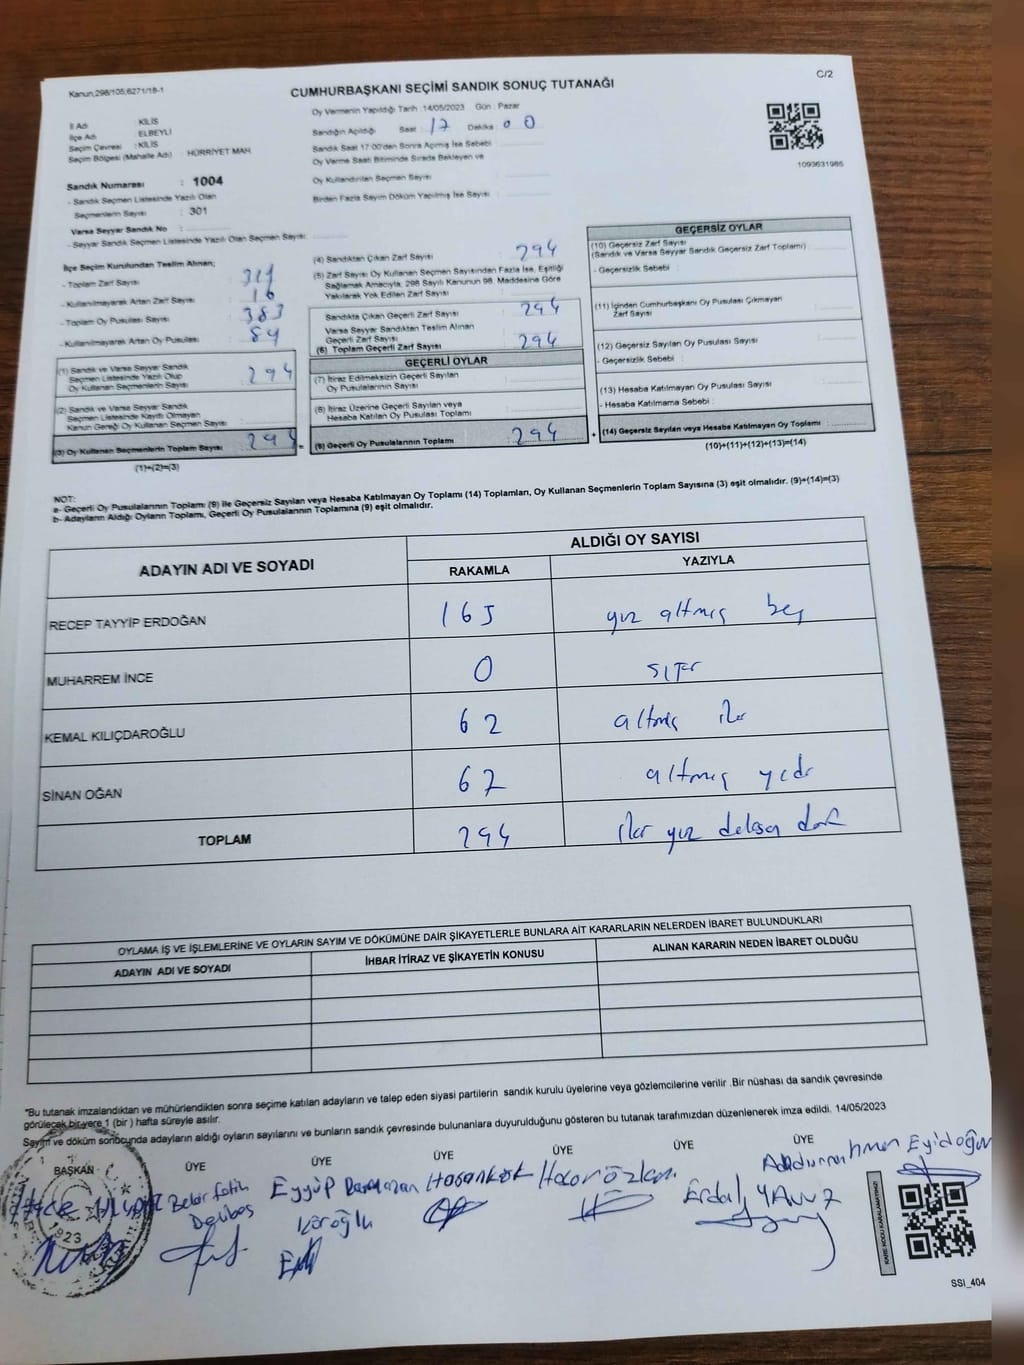 Kanun,298/105;6271/18-1
C/2
CUMHURBAŞKANI SEÇİMİ SANDIK SONUÇ TUTANAĞI
İl Adı : KİLİS
İlçe Adı : ELBEYLİ
Seçim Çevresi : KİLİS
Seçim Bölgesi (Mahalle Adı) HÜRRİYET MAH.
Oy Vermenin Yapıldığı Tarih 14/05/2023 Gün : Pazar
Sandığın Açıldığı Saat : 17 Dakika : 00
Sandık Saat 17:00'den Sonra Açımış İse Sebebi
Oy Verme Saati Bitiminde Sırada Bekleyen ve
Oy Kullandırılan Seçmen Sayısı
Birden Fazla Sayım Döküm Yapılmış İse Sayısı
1093631985
Sandık Numarası : 1004
- Sandık Seçmen Listesinde Yazılı Olan
Seçmenlerin Sayısı : 301
Varsa Seyyar Sandık No :
- Seyyar Sandık Seçmen Listesinde Yazılı Olan Seçmen Sayısı:
İlçe Seçim Kurulundan Teslim Alınan;
- Toplam Zarf Sayısı :
- Kullanılmayarak Artan Zarf Sayısı : 16
- Toplam Oy Pusulası Sayısı : 383
- Kullanılmayarak Artan Oy Pusulası : 89
(1) Sandık ve Varsa Seyyar Sandık
Seçmen Listesinde Yazılı Olup
Oy Kullanan Seçmenlerin Sayısı : 294
(2) Sandık ve Varsa Seyyar Sandık
Seçmen Listesinde Kayıtlı Olmayan
Kanun Gereği Oy Kullanan Seçmen Sayısı :
(3) Oy Kullanan Seçmenlerin Toplam Sayısı : 294
(1)+(2)=(3)
(4) Sandıktan Çıkan Zarf Sayısı : 294
(5) Zarf Sayısı Oy Kullanan Seçmen Sayısından Fazla İse, Eşitliği
Sağlamak Amacıyla, 298 Sayılı Kanunun 98. Maddesine Göre
Yakılarak Yok Edilen Zarf Sayısı :
Sandıkta Çıkan Geçerli Zarf Sayısı : 294
Varsa Seyyar Sandıktan Teslim Alınan
Geçerli Zarf Sayısı :
(6) Toplam Geçerli Zarf Sayısı : 294
GEÇERLİ OYLAR
(7) İtiraz Edilmeksizin Geçerli Sayılan
Oy Pusulalarının Sayısı :
(8) İtiraz Üzerine Geçerli Sayılan veya
Hesaba Katılan Oy Pusulası Toplamı :
(9) Geçerli Oy Pusulalarının Toplamı : 294
GEÇERSİZ OYLAR
(10) Geçersiz Zarf Sayısı
(Sandık ve Varsa Seyyar Sandık Geçersiz Zarf Toplamı) :
- Geçersizlik Sebebi :
(11) İçinden Cumhurbaşkanı Oy Pusulası Çıkmayan
Zarf Sayısı :
(12) Geçersiz Sayılan Oy Pusulası Sayısı :
- Geçersizlik Sebebi :
(13) Hesaba Katılmayan Oy Pusulası Sayısı :
- Hesaba Katılmama Sebebi :
(14) Geçersiz Sayılan veya Hesaba Katılmayan Oy Toplamı :
(10)+(11)+(12)+(13)=(14)
NOT:
a- Geçerli Oy Pusulalarının Toplamı (9) ile Geçersiz Sayılan veya Hesaba Katılmayan Oy Toplamı (14) Toplamları, Oy Kullanan Seçmenlerin Toplam Sayısına (3) eşit olmalıdır. (9)+(14)=(3)
b- Adayların Aldığı Oyların Toplamı, Geçerli Oy Pusulalarının Toplamına (9) eşit olmalıdır.
ADAYIN ADI VE SOYADI
ALDIĞI OY SAYISI
RAKAMLA YAZIYLA
RECEP TAYYİP ERDOĞAN 165 yüz altmış beş
MUHARREM İNCE 0 sıfır
KEMAL KILIÇDAROĞLU 62 altmış iki
SİNAN OĞAN 67 altmış yedi
TOPLAM 294 iki yüz doksan dört
OYLAMA İŞ VE İŞLEMLERİNE VE OYLARIN SAYIM VE DÖKÜMÜNE DAİR ŞİKAYETLERLE BUNLARA AİT KARARLARIN NELERDEN İBARET BULUNDUKLARI
ADAYIN ADI VE SOYADI İHBAR İTİRAZ VE ŞİKAYETİN KONUSU ALINAN KARARIN NEDEN İBARET OLDUĞU
"Bu tutanak imzalandıktan ve mühürlendikten sonra seçime katılan adayların ve talep eden siyasi partilerin sandık kurulu üyelerine veya gözlemcilerine verilir .Bir nüshası da sandık çevresinde
görülecek bir yere 1 (bir ) hafta süreyle asılır.
Sayım ve döküm sonucunda adayların aldığı oyların sayılarını ve bunların sandık çevresinde bulunanlara duyurulduğunu gösteren bu tutanak tarafımızdan düzenlenerek imza edildi. 14/05/2023
BAŞKAN ÜYE ÜYE ÜYE ÜYE ÜYE ÜYE
Fatih
Delibaş
Eyyüp Ramazan
Köroğlu
Erdal YAVUZ
Abdurrahman Eyidoğan
1923
KARE KODU KARALAMAYINIZ!
SSI_404